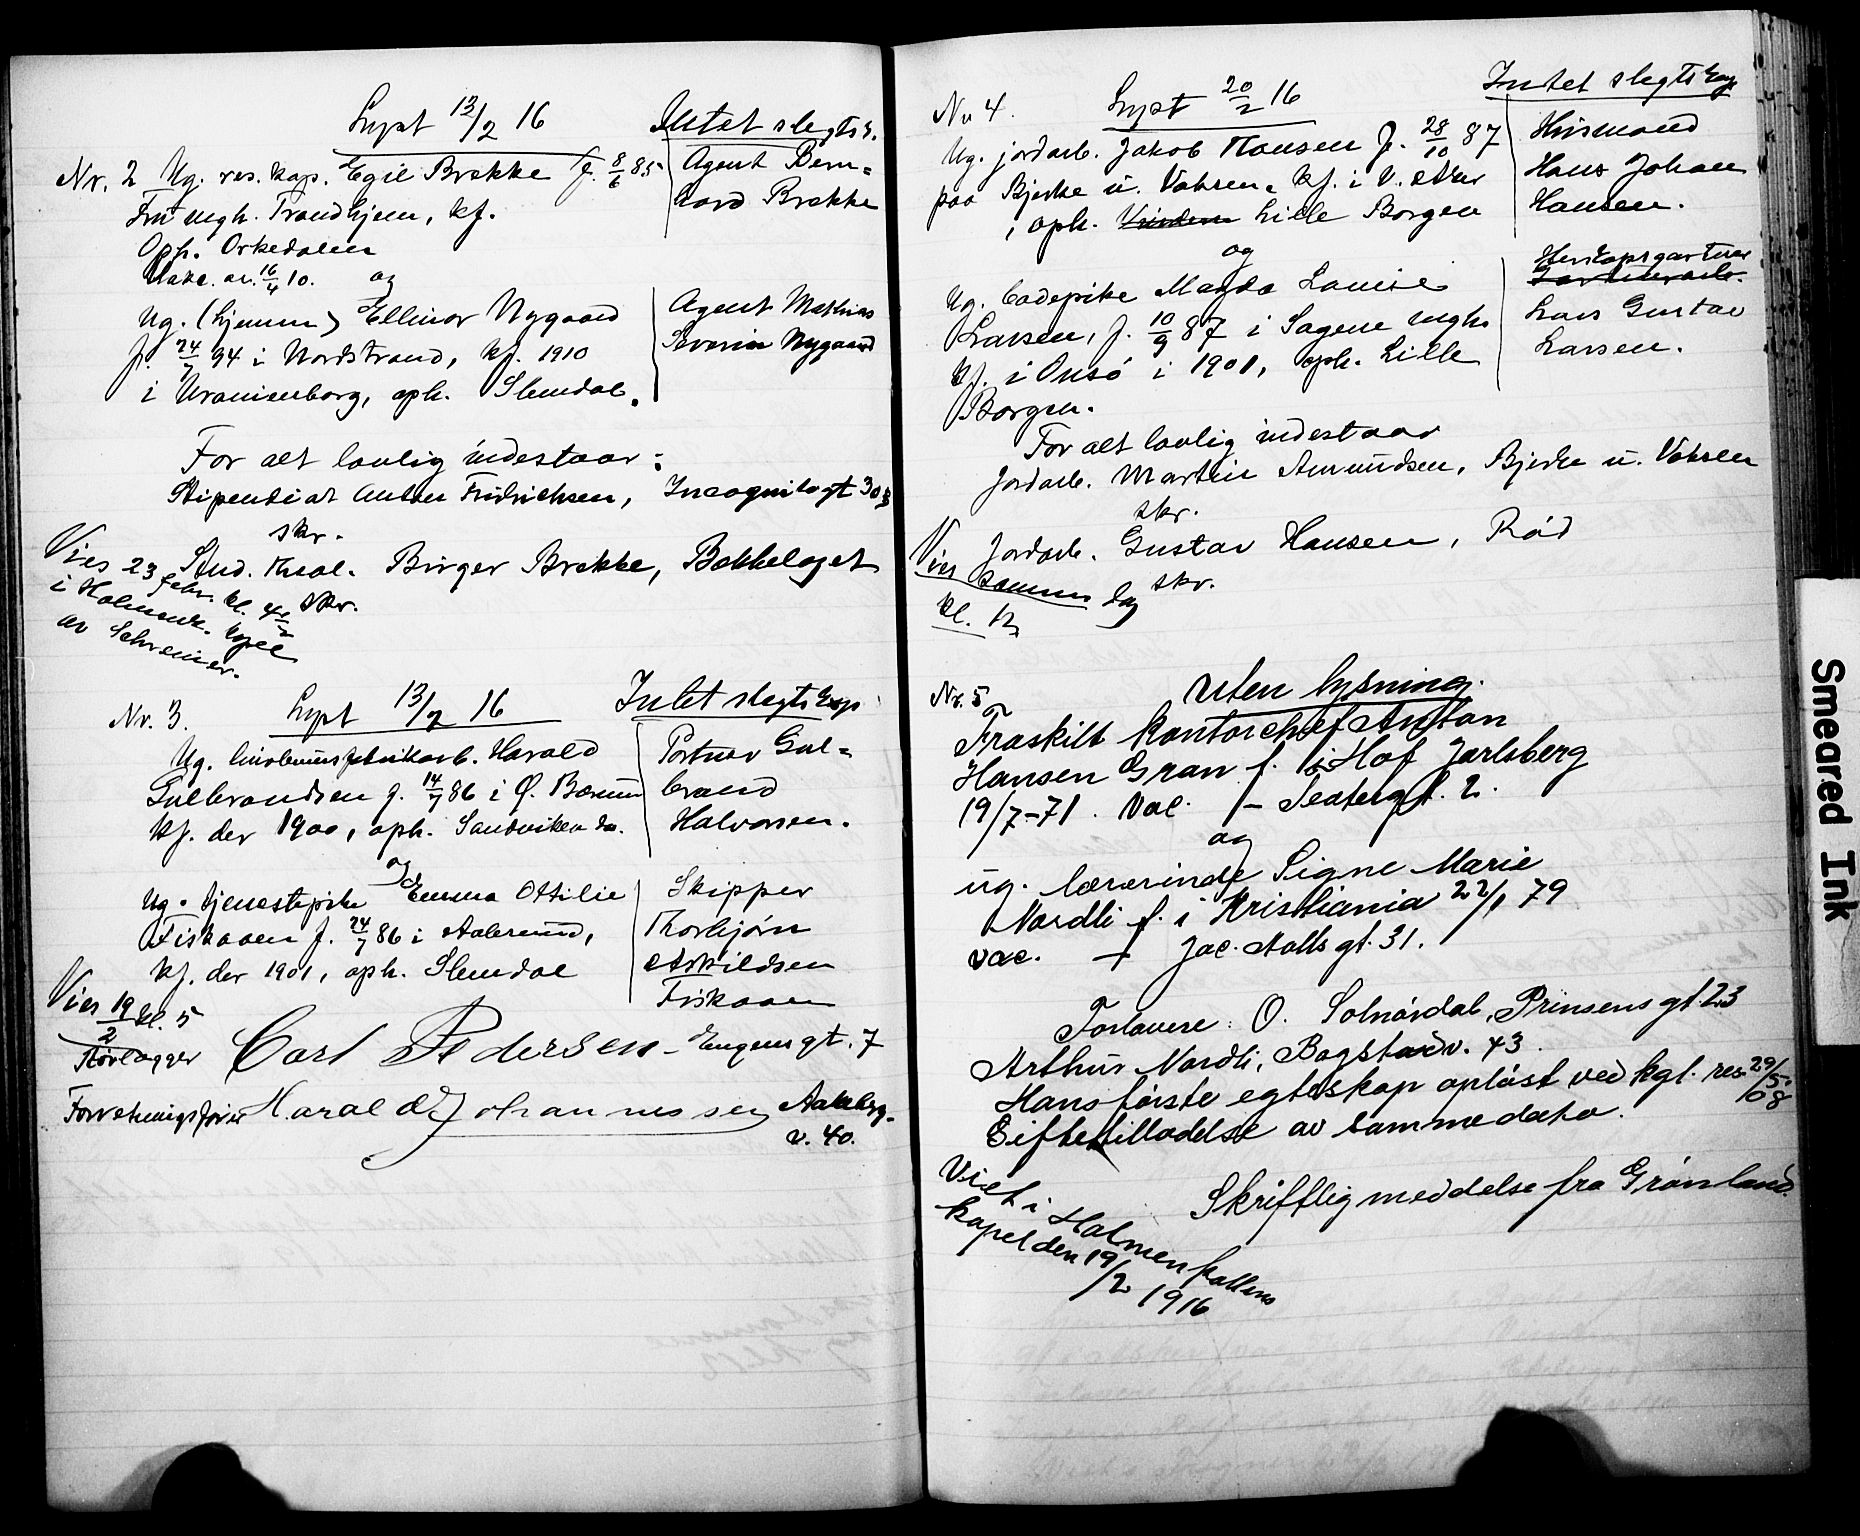 Lyst 13/2 16 Intet slegtsk.
Nr. 2 Ug. res. kap. Egil Brekke f. 8/6 85 Agent Bern=
Fru mgh. Trondhjem, kf. hard Brekke
Oph. Orkedalen
Vakc. av. 16/4 10. og
Ug. (hjemme) Ellinor Nygaard Agent Mathias
f. 24/7 94 i Nordstrand, kf. 1910 Severin Nygaard
i Uranienborg, oph. Slemdal.
For alt lovlig indestaar:
Stipendiat Anton Fridrichsen, Incognitogt 30
skr.
Stud. theol. Birger Brekke, Bekkelaget
skr.
Vies 23 febr. kl. 4 1/2
i Holmenk. kapel
av Schreiner.
Nr. 3. Lyst 13/2 16 Intet slegtskap
Ug. linoleumsfabrikarb. Harald Portner Gul=
Gulbrandsen f. 14/7 86 i Ø. Bærum brand
kf. der 1900, oph. Sandviken do. Halvorsen.
og
Ug. tjenestepike Emma Ottilie Skipper
Fiskaaen f. 24/7 86 i Aalesund, Thorbjørn
kf. der 1901, oph. Slemdal Askildsen
Fiskaaen
Vies 19/2 kl. 5
Rørlægger Carl Pedersen - Eugenisgt. 7
Forretningsfører Harald Johannessen Aakebg.
v. 40.
Nr 4. Lyst 20/2 16 Intet slegtskap
Ug. jordarb. Jakob Hansen f. 28/10 87 Husmand
paa Bjerke u. Vøksen. kf. i V. Aker Hans Johan
, oph. Lille Borgen Hansen.
og
Ug. badepike Magda Louise Herskapsgartner
Larsen, f. 10/9 87 i Sagene mgh. Lars Gustav
kf. i Onsø i 1901, oph. Lille Larsen.
Borgen.
For alt lovlig indestaar
Jordarb. Martin Amundsen, Bjerke u. Voksen
skr.
Jordarb. Gustav Hansen, Rød
skr.
Vies samme dag
kl. 12
Nr. 5 Uten lysning.
Fraskilt kontorchef Anton
Hansen Gran f. i Hof Jarlsberg
19/7-71. Vac. + Teatergt. 2.
og
ug. lærerinde Signe Marie
Nordli f. i Kristiania 22/1 79
vac. + Jac. Aalls gt. 31.
Forlovere: O. Solnørdal, Prinsensgt. 23
Arthur Nordli, Bogstadv. 43.
Hans første egteskap opløst ved kgl. res. 29/5 08
Giftetilladelse av samme dato.
Skriftlig meddelse fra Grønland.
Viet i Holmenkollens
kapel den 19/2 1916
Smeared Ink